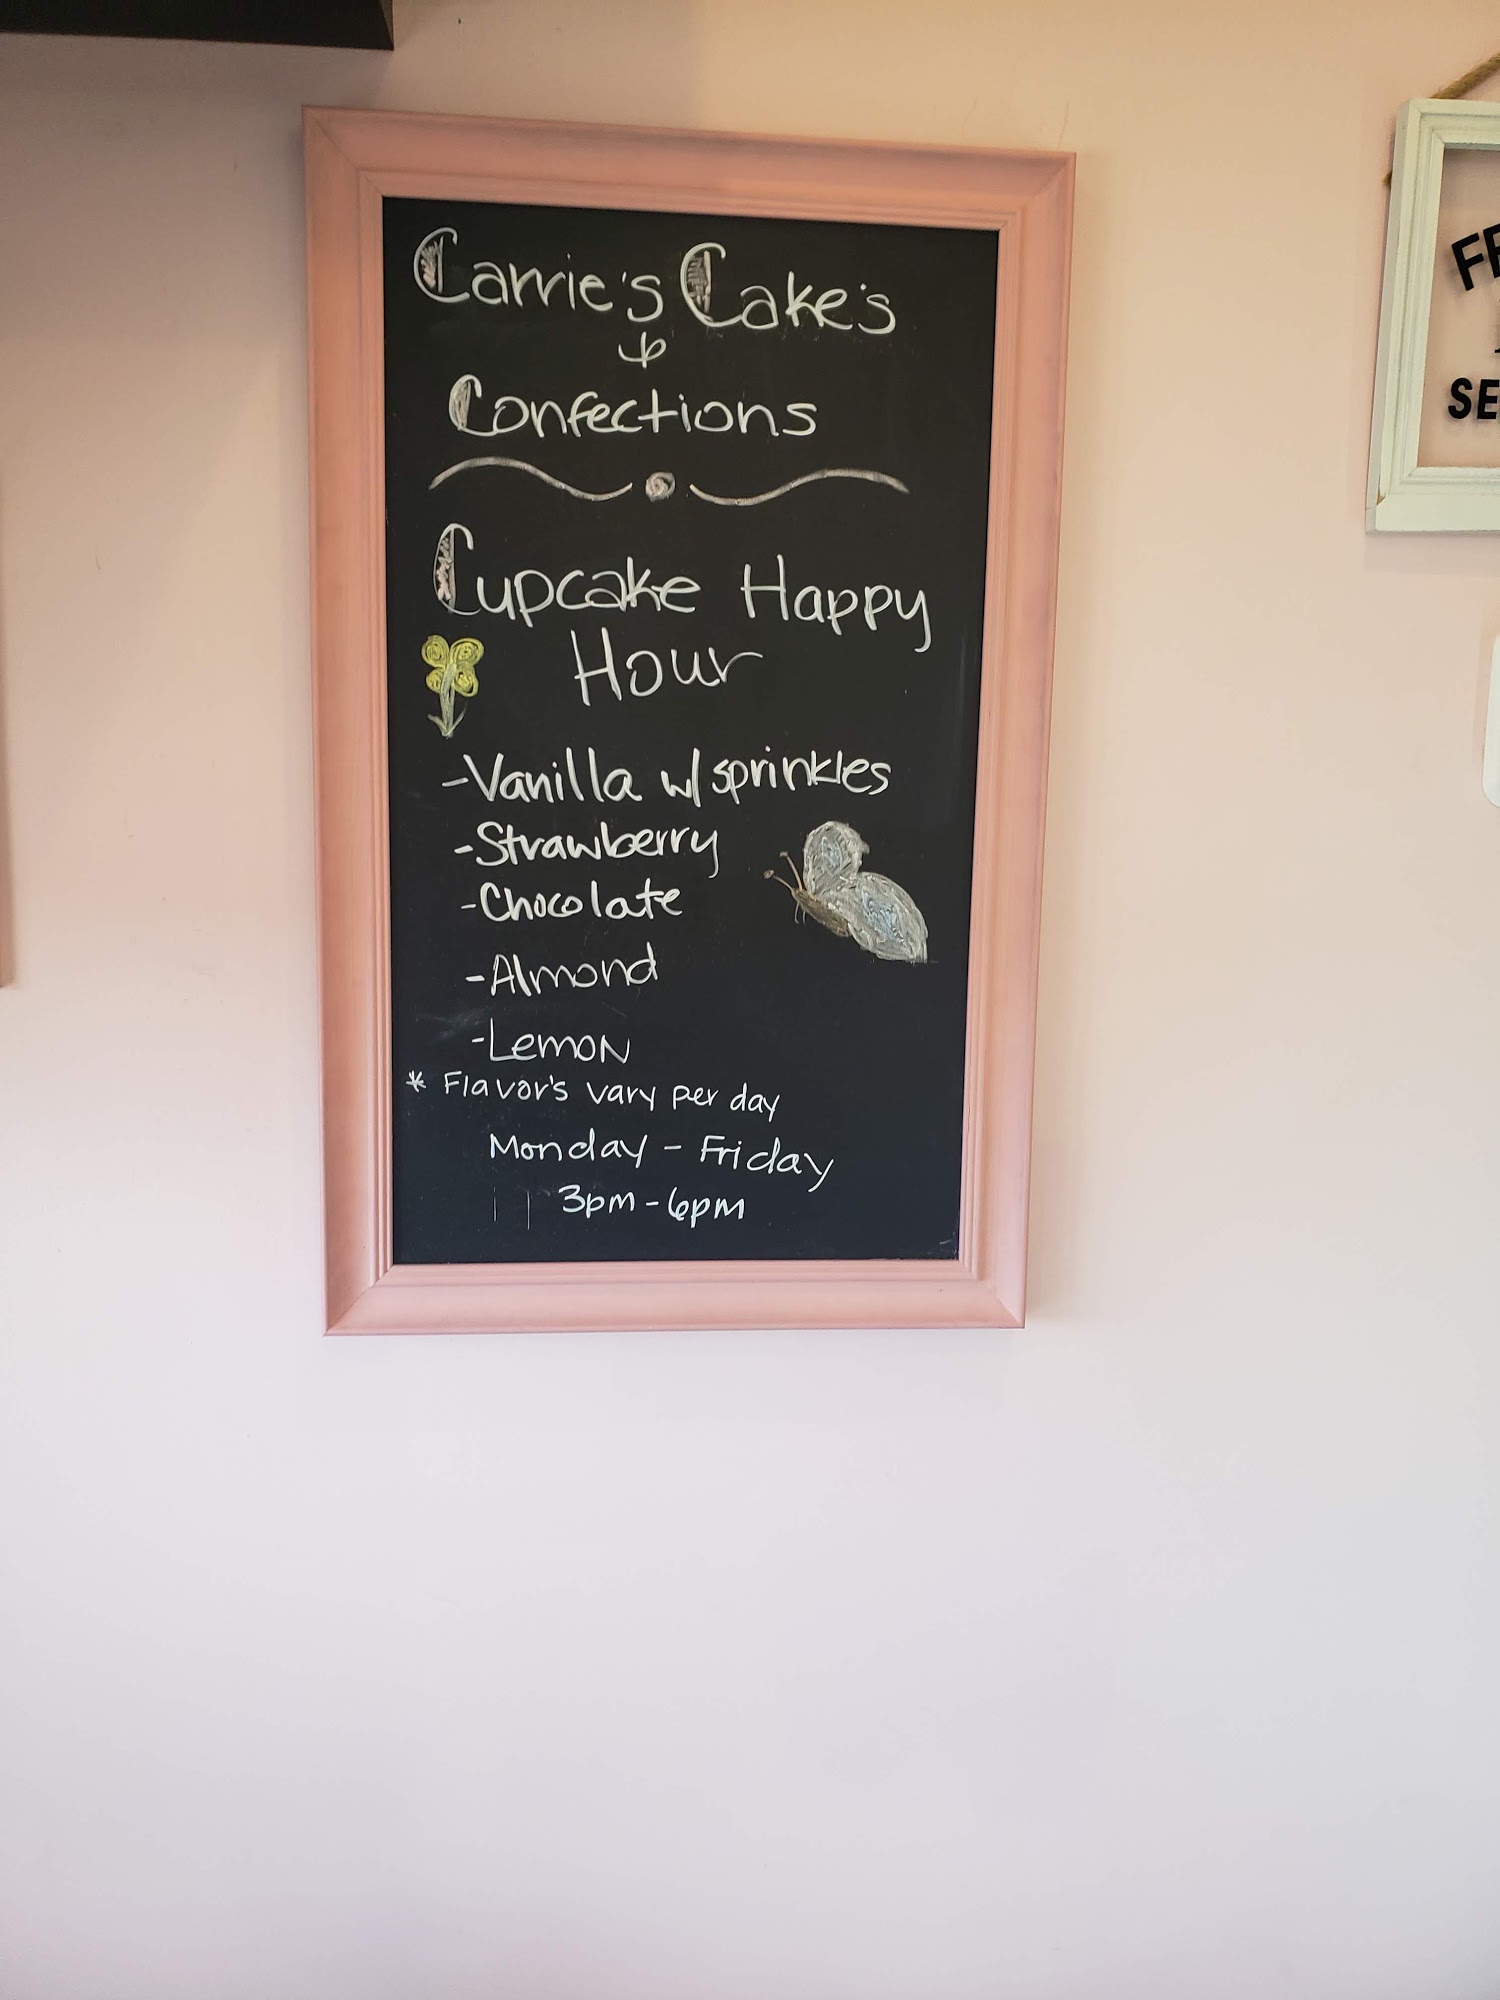 Carrie's Cake's
&
Confections
Cupcake Happy
Hour
-Vanilla w/ sprinkles
-Strawberry
-Chocolate
-Almond
-Lemon
* Flavor's vary per day
Monday - Friday
3pm - 6pm
SE